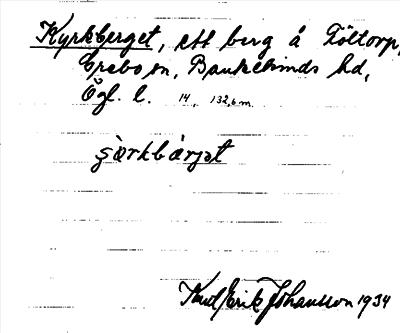 Kyrkberget, ett berg å Töltorp,
Örebo sn, Bankekinds hd,
Ögl. l. 14, 132,6 m.
ʂœrkbærjət
Knut Erik Johansson 1934